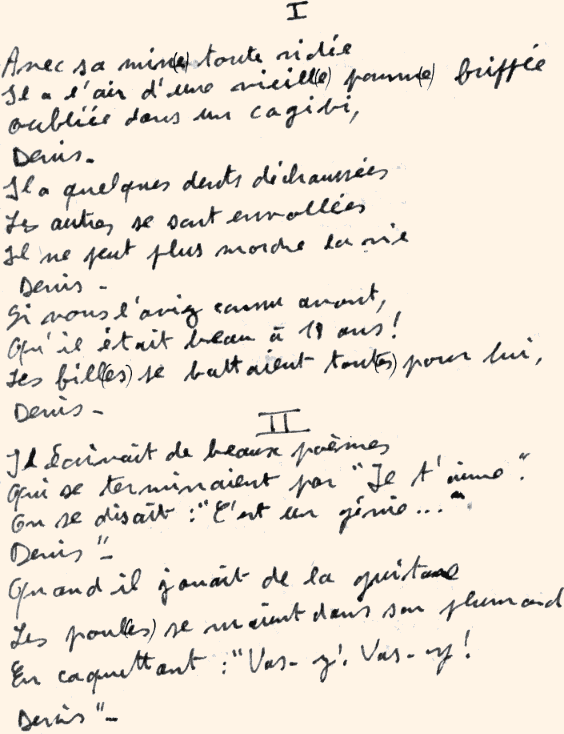 I
Avec sa min(e) toute ridée
Il a l'air d'une vieill(e) pomm(e) griffée
oubliée dans un cagibi,
Denis.
Il a quelques dents déchaussées
Les autres se sont envollées
Il ne peut plus mordre la vie
Denis -
Si vous l'aviez connu avant,
Qu'il était beau à 18 ans!
Les fill(es) se battaient tout(es) pour lui,
Denis -
II
Il écrivait de beaux poèmes
Qui se terminaient par "Je t'aime".
On se disait : "C'est un génie..."
Denis" -
Quand il jouait de la guitare
Les poul(es) se ruaient dans son plumard
En caquettant : "Vas-y! Vas-y!
Denis" -